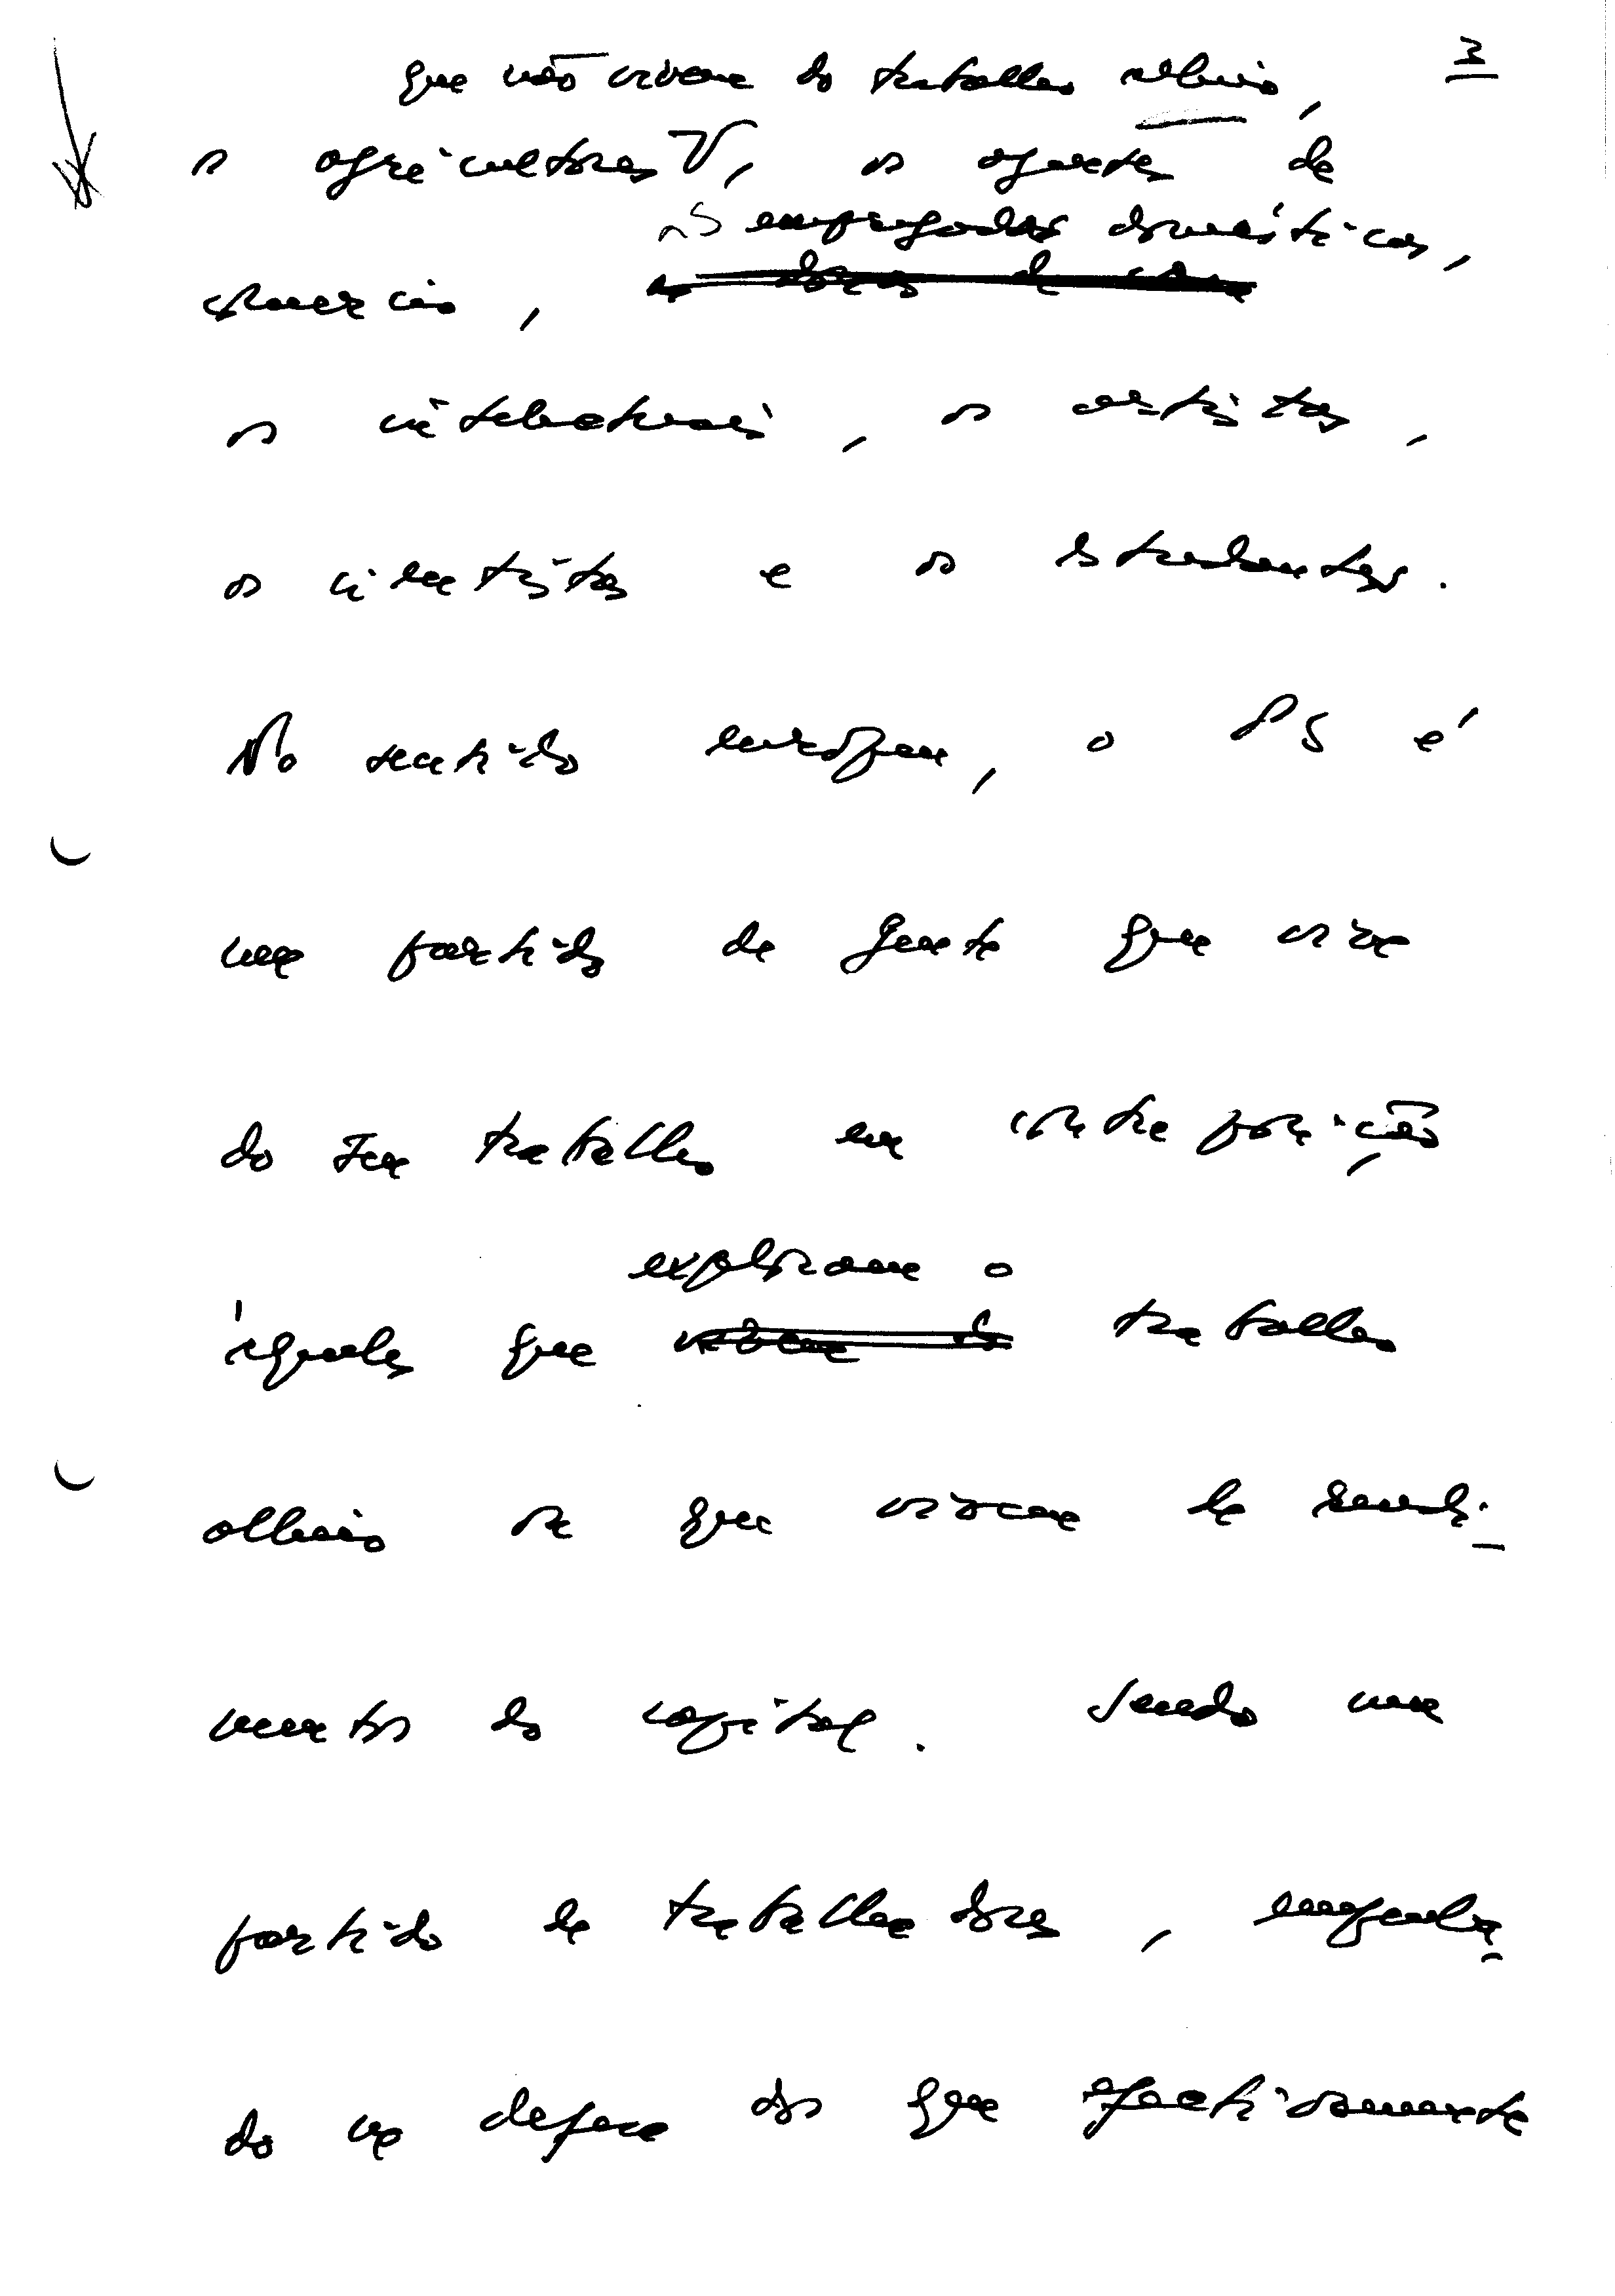 3
que não vivem do trabalho alheio,
os agricultores V, os agentes de
os empregados domésticos,
comércio, as donas de casa
os intelectuais, os artistas,
os cientistas e os estudantes.
No sentido europeu, o PS é
um partido de gente que vive
do seu trabalho em contraposição
exploram o
àqueles que vivem do trabalho
alheio ou que vivem de rendi-
mentos do capital. Sendo um
partido de trabalhadores, empenha-
do na defesa dos que efectivamente